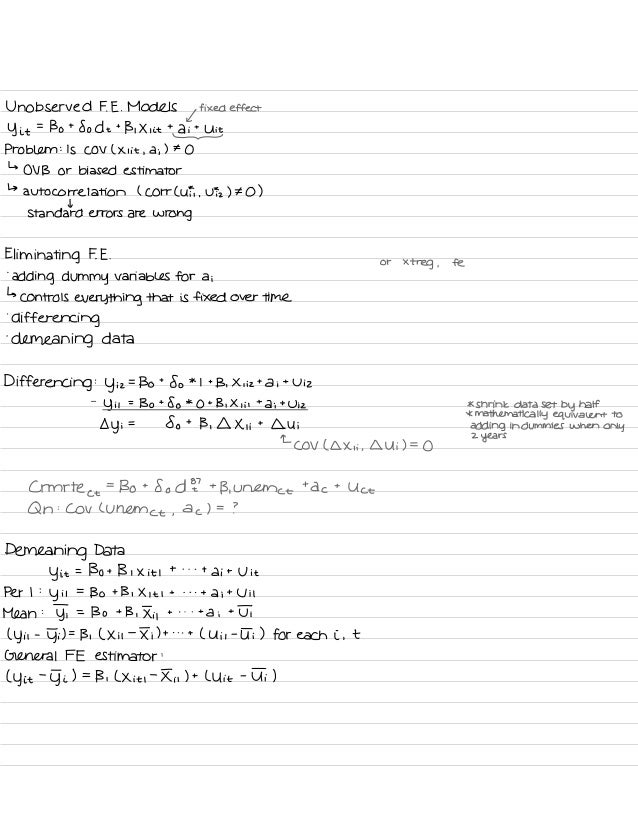 Unobserved F.E. Models
fixed effect
yᵢₜ = B₀ + δ₀dₜ + B₁X₁ᵢₜ + aᵢ + uᵢₜ
Problem: Is COV(X₁ᵢₜ, aᵢ) ≠ 0
↳ OVB or biased estimator
↳ autocorrelation (corr(u*ᵢ₁, u*ᵢ₂) ≠ 0)
↓
standard errors are wrong
Eliminating F.E.
or xtreg, fe
· adding dummy variables for aᵢ
↳ controls everything that is fixed over time
· differencing
· demeaning data
Differencing: yᵢ₂ = B₀ + δ₀ * 1 + B₁ X₁ᵢ₂ + aᵢ + uᵢ₂
- yᵢ₁ = B₀ + δ₀ * 0 + B₁ X₁ᵢ₁ + aᵢ + uᵢ₂
Δyᵢ = δ₀ + B₁ ΔX₁ᵢ + Δuᵢ
COV(ΔX₁ᵢ, Δuᵢ) = 0
* shrink data set by half
* mathematically equivalent to
adding in dummies when only
2 years
Crmrte_ct = B₀ + δ₀d⁸⁷ₜ + B₁unem_ct + a_c + u_ct
Qn: Cov (unem_ct, a_c) = ?
Demeaning Data
yᵢₜ = B₀ + B₁Xᵢₜ₁ + ··· + aᵢ + uᵢₜ
Per 1: yᵢ₁ = B₀ + B₁Xᵢₜ₁ + ··· + aᵢ + uᵢ₁
Mean: y̅ᵢ = B₀ + B₁X̅ᵢ₁ + ··· + aᵢ + u̅ᵢ
(yᵢ₁ - y̅ᵢ) = B₁ (Xᵢ₁ - X̅ᵢ) + ··· + (uᵢ₁ - u̅ᵢ) for each i, t
General FE estimator:
(yᵢₜ - y̅ᵢ) = B₁ (Xᵢₜ₁ - X̅ᵢ₁) + (uᵢₜ - u̅ᵢ)